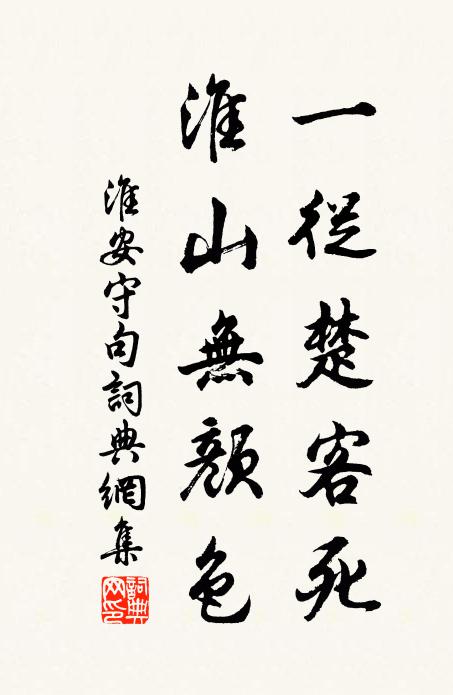 一從楚客死
淮山無顏色
淮安守句詞典網集
詞典網印